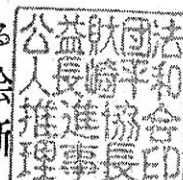 公益財団法
人長崎平和
推進協会
理事長印